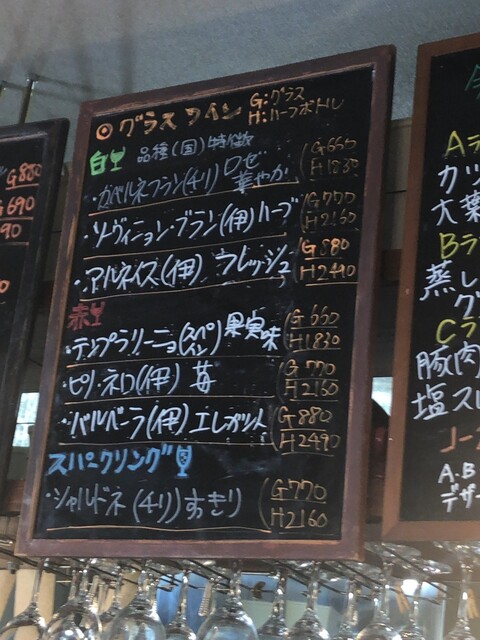 ◎グラスワイン G:グラス
H:ハーフボトル
白 品種(国)特徴
・カベルネフラン(チリ)ロゼ 華やか G660 H1830
・ソヴィニョン・ブラン(伊)ハーブ G770 H2160
・アルネイズ(伊) フレッシュ G880 H2490
赤
・テンプラリーニョ(スペイン)果実味 G660 H1830
・ピノ・ネロ(伊) 苺 G770 H2160
・バルベーラ(伊)エレガント G880 H2490
スパークリング
・シャルドネ(チリ)すっきり G770 H2160
G880
G690
90
Aラ
カツ
大葉
Bラ
蒸し
グ
Cラ
豚(肉
塩ス
A.B
デザー